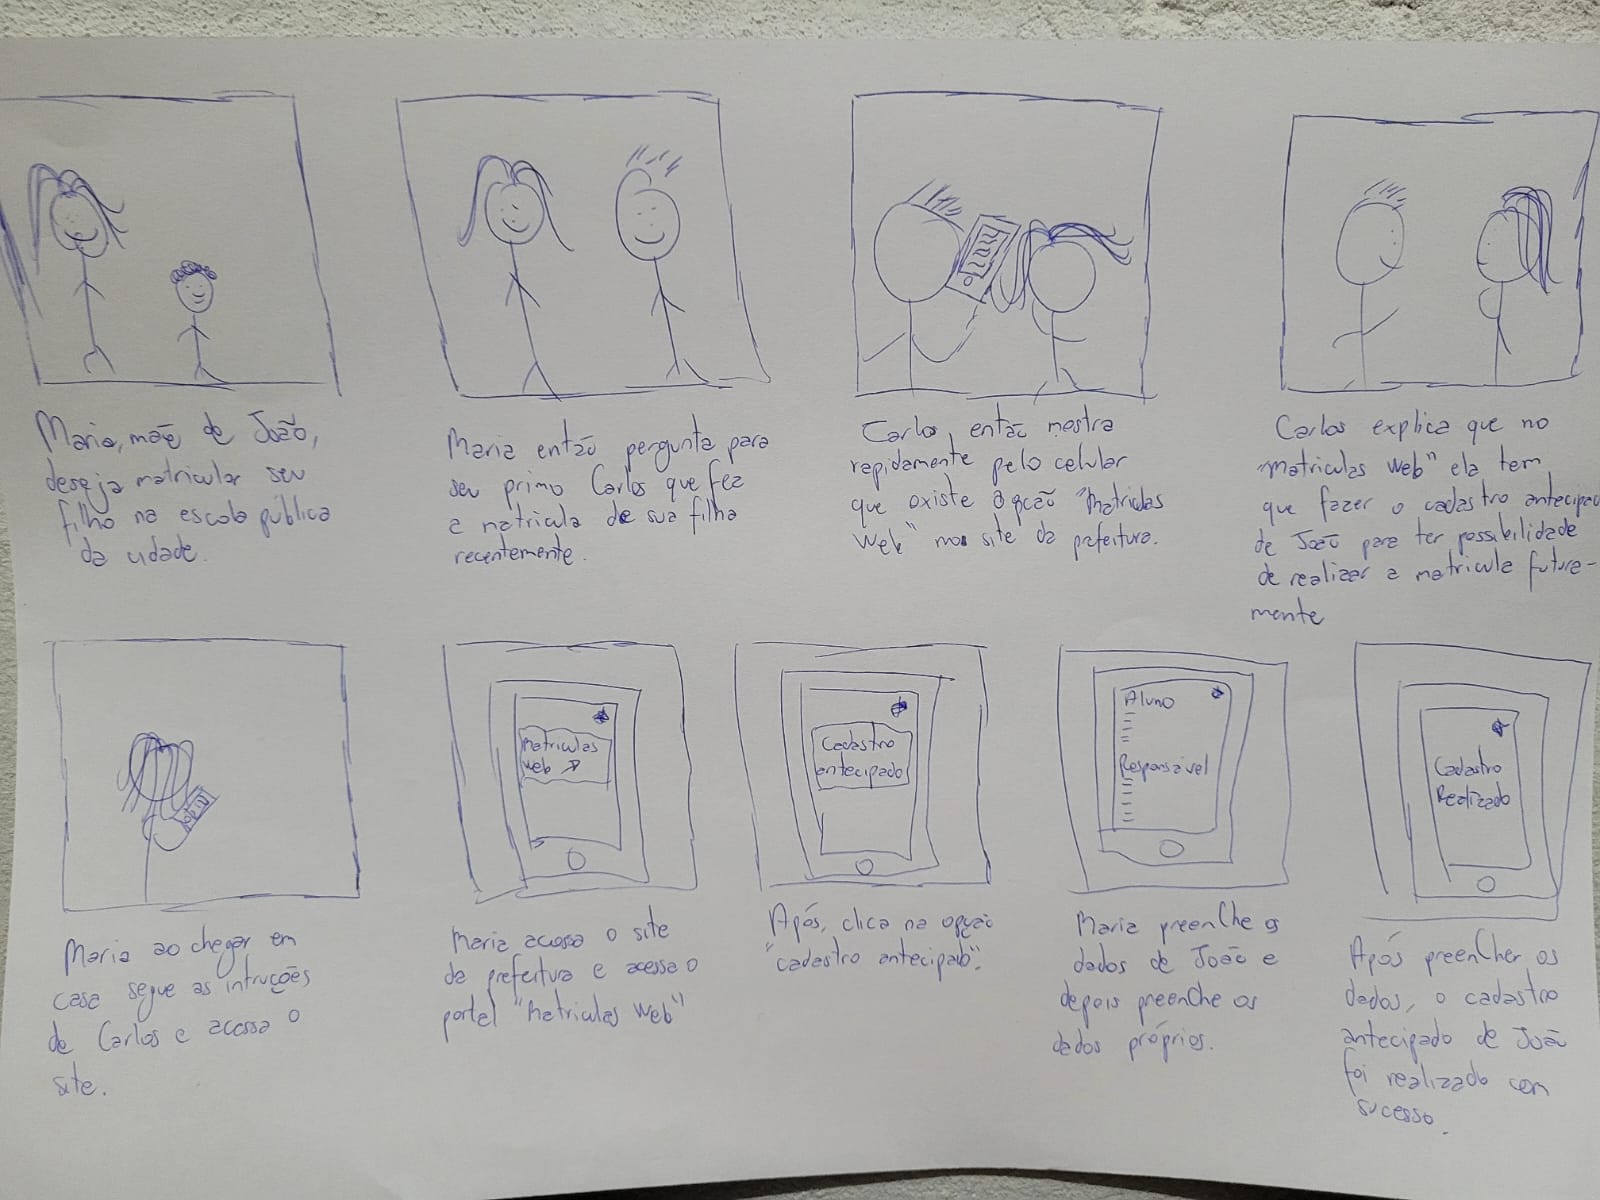 Maria, mãe de João,
deseja matricular seu
filho na escola pública
da cidade.
Maria então pergunta para
seu primo Carlos que fez
a matricula de sua filha
recentemente.
Carlos, então mostra
rapidamente pelo celular
que existe a opção "Matriculas
Web" no site da prefeitura.
Carlos explica que no
"Matriculas Web" ela tem
que fazer o cadastro antecipad
de João para ter possibilidade
de realizar a matricula futura-
mente
Maria ao chegar em
casa segue as intruções
de Carlos e acessa o
site.
Matriculas
Web
Maria acessa o site
da prefeitura e acessa o
portal "Matriculas Web"
Cadastro
antecipado
Após, clica na opção
"cadastro antecipado".
Aluno
Responsável
Maria preenche os
dados de João e
depois preenche os
dados próprios.
Cadastro
Realizado
Após preencher os
dados, o cadastro
antecipado de João
foi realizado com
sucesso.